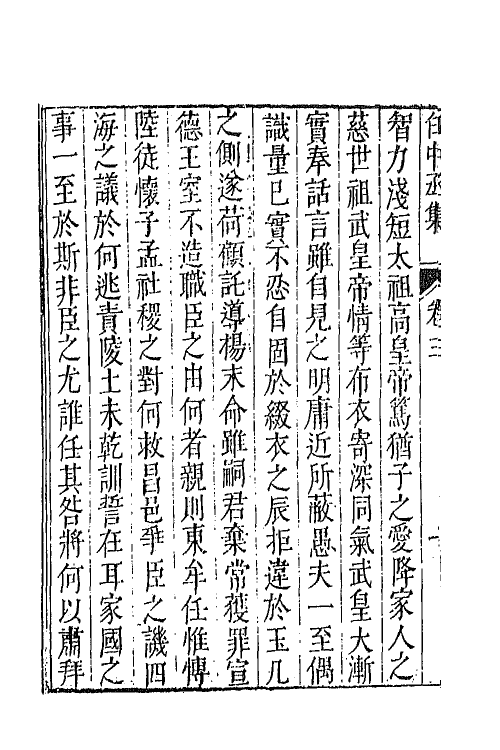 任中丞集 卷三
智力淺短太祖高皇帝篤猶子之愛降家人之
慈世祖武皇帝情等布衣寄深同氣武皇大漸
實奉話言雖自見之明庸近所蔽愚夫一至偶
識量已實不忍自固於綴衣之辰拒違於玉几
之側遂荷顧託導楊末命雖嗣君棄常獲罪宣
德王室不造職臣之由何者親則東牟任惟博
陸徒懷子孟社稷之對何救昌邑爭臣之譏四
海之議於何逃責陵土未乾訓誓在耳家國之
事一至於斯非臣之尤誰任其咎將何以肅拜